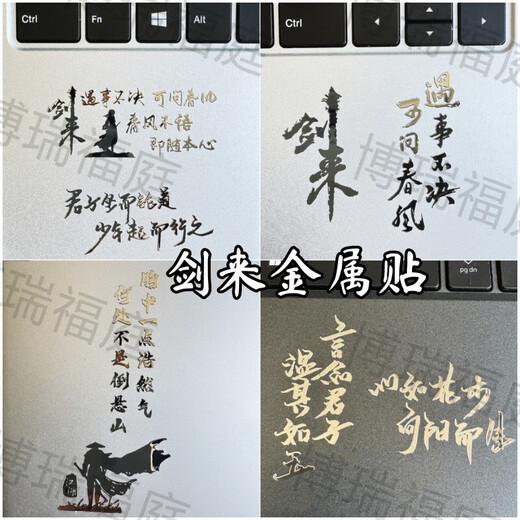 Ctrl
Fn
Alt
剑来
遇事不决 可问春风
春风不语
即随本心
君子坐而论道
少年起而行之
Ctrl
剑来
遇事不决
可问春风
剑来金属贴
胸中一点浩然气
何处不是倒悬山
pg dn
言念君子
温其如玉
心如花木
向阳而生
博瑞福庭
博瑞福庭
博瑞福庭
博瑞福庭